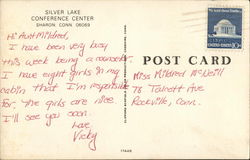 SILVER LAKE
CONFERENCE CENTER
SHARON, CONN. 06069
Hi Aunt Mildred,
I have been very busy
this week being a counselor.
I have eight girls in my
cabin that I'm responsible
for. The girls are nice.
I'll see you soon.
Love
Vicky
POST CARD
Miss Mildred McNeill
78 Talcott Ave
Rockville, Conn.